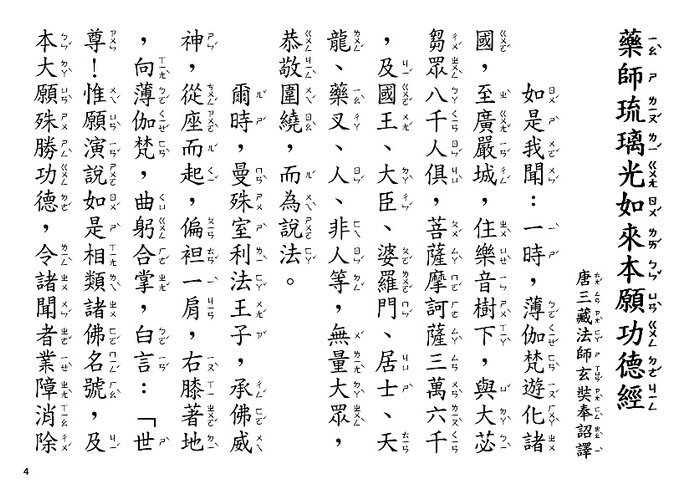 藥師琉璃光如來本願功德經
唐三藏法師玄奘奉詔譯
如是我聞：一時，薄伽梵遊化諸
國，至廣嚴城，住樂音樹下，與大苾
芻眾八千人俱，菩薩摩訶薩三萬六千
，及國王、大臣、婆羅門、居士、天
龍、藥叉、人、非人等，無量大眾，
恭敬圍繞，而為說法。
爾時，曼殊室利法王子，承佛威
神，從座而起，偏袒一肩，右膝著地
，向薄伽梵，曲躬合掌，白言：「世
尊！惟願演說如是相類諸佛名號，及
本大願殊勝功德，令諸聞者業障消除
4